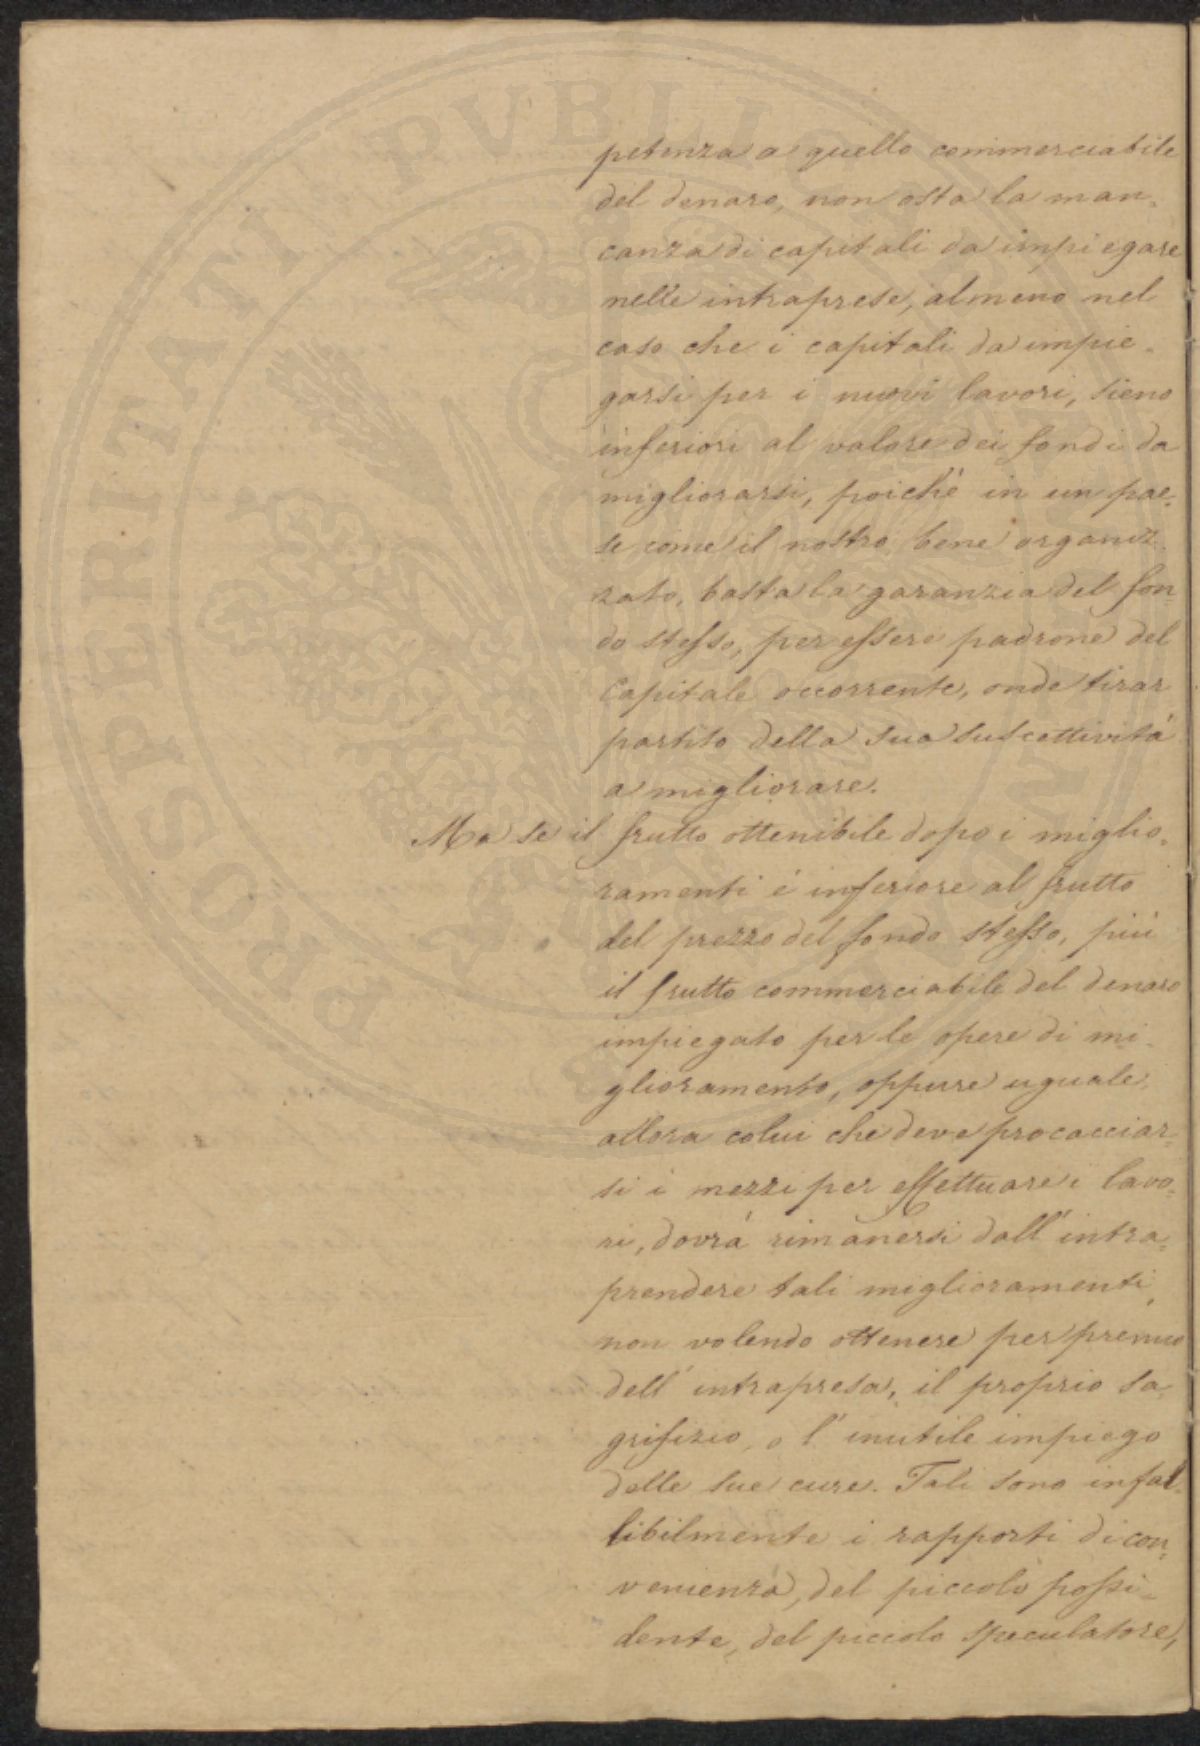 petenza a quello commerciabile
del denaro, non osta la man-
canza di capitali da impiegare
nelle intraprese, almeno nel
caso che i capitali da impie-
garsi per i nuovi lavori, sieno
inferiori al valore dei fondi da
migliorarsi, poichè in un pae-
se come il nostro bene organiz-
zato, basta la garanzia del fon-
do stesso, per essere padrone del
Capitale occorrente, onde tirar
partito della sua suscettività
a migliorare.
Ma se il frutto ottenibile dopo i miglio-
ramenti é inferiore al frutto
del prezzo del fondo stesso, più
il frutto commerciabile del denaro
impiegato per le opere di mi-
glioramento, oppure uguale,
allora colui che deve procacciar-
si i mezzi per effettuare i lavo-
ri, dovrá rimanersi dall' intra-
prendere tali miglioramenti,
non volendo ottenere per premio
dell' intrapresa, il proprio sa-
grifizio, o l' inutile impiego
delle sue cure. Tali sono infal-
libilmente i rapporti di con-
venienza, del piccolo possi-
dente, del piccolo speculatore,
PROSPERITATI PVBLICAE